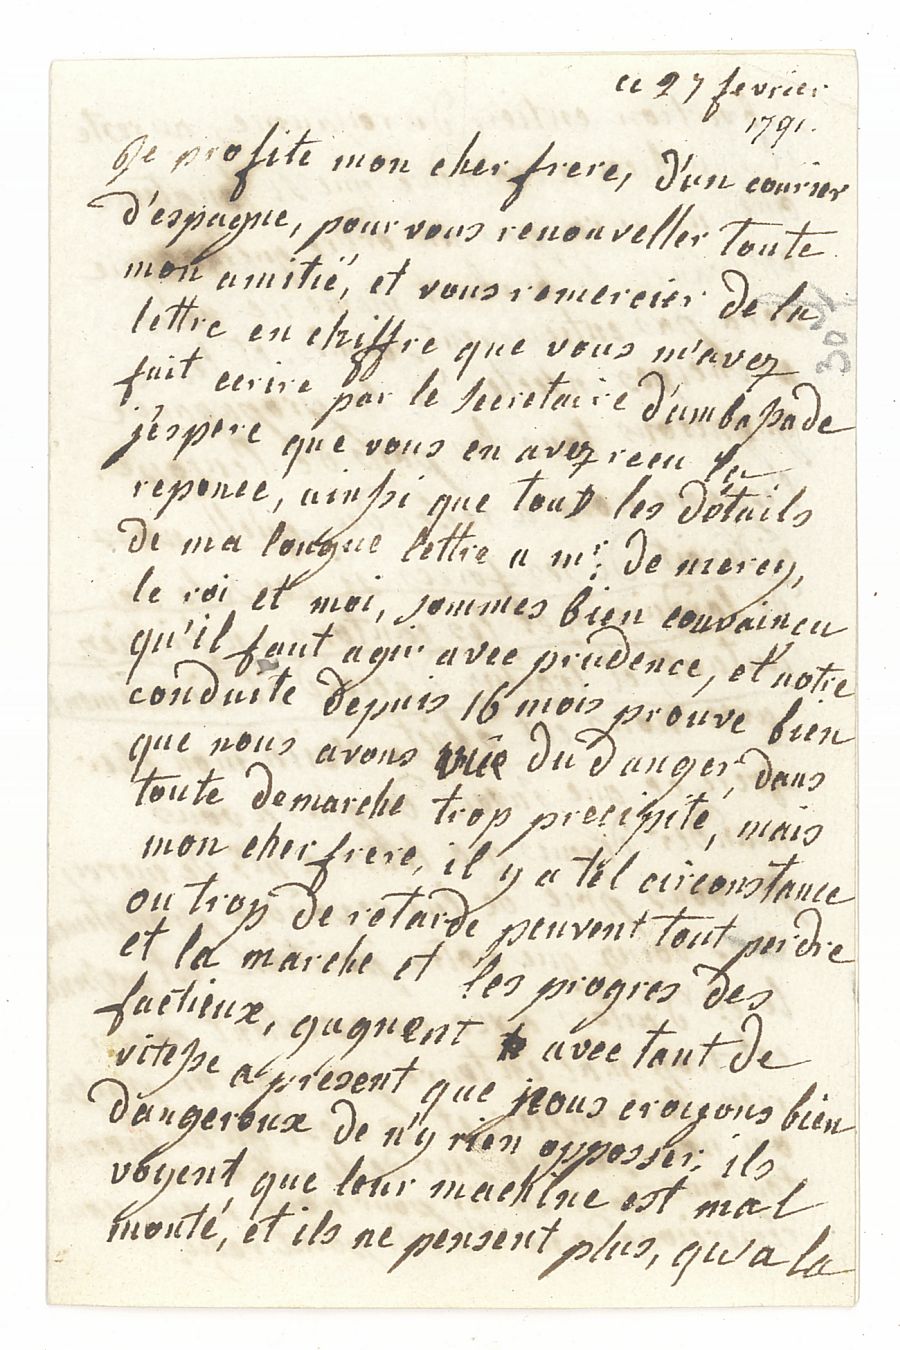 ce 27 fevrier
1791.
Je profite mon cher frere, d'un courier
d'espagne, pour vous renouveller toute
mon amitié, et vous remercier de la
lettre en chiffre que vous m'avez
fait ecrire par le secretaire d'ambassade
j'espere que vous en avez recu la
reponce, ainssi que tous les détails
de ma longue lettre a mr. de mercy,
le roi et moi, sommes bien convaincu
qu'il faut agir avec prudence, et notre
conduite depuis 16 mois prouve bien
que nous avons vüe du danger, dans
toute demarche trop precipité, mais
mon cher frere, il y a tel circonstance
ou trop de retarde peuvent tout perdre
et la marche et les progres des
factieux, gagnent avec tant de
vitesse a present que nous croyons bien
dangereux de n'y rien opposser, ils
voyent que leur machine est mal
monté, et ils ne pensent plus, qu'a la